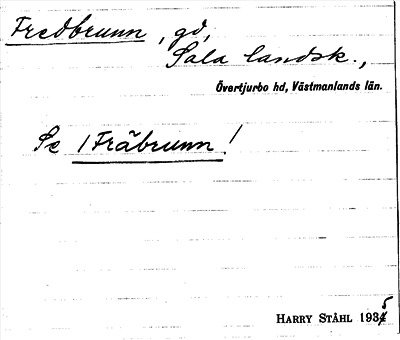 Fredbrunn, gd,
Sala landsk.,
Övertjurbo hd, Västmanlands län.
Se /Fräbrunn!
HARRY STÅHL 1935